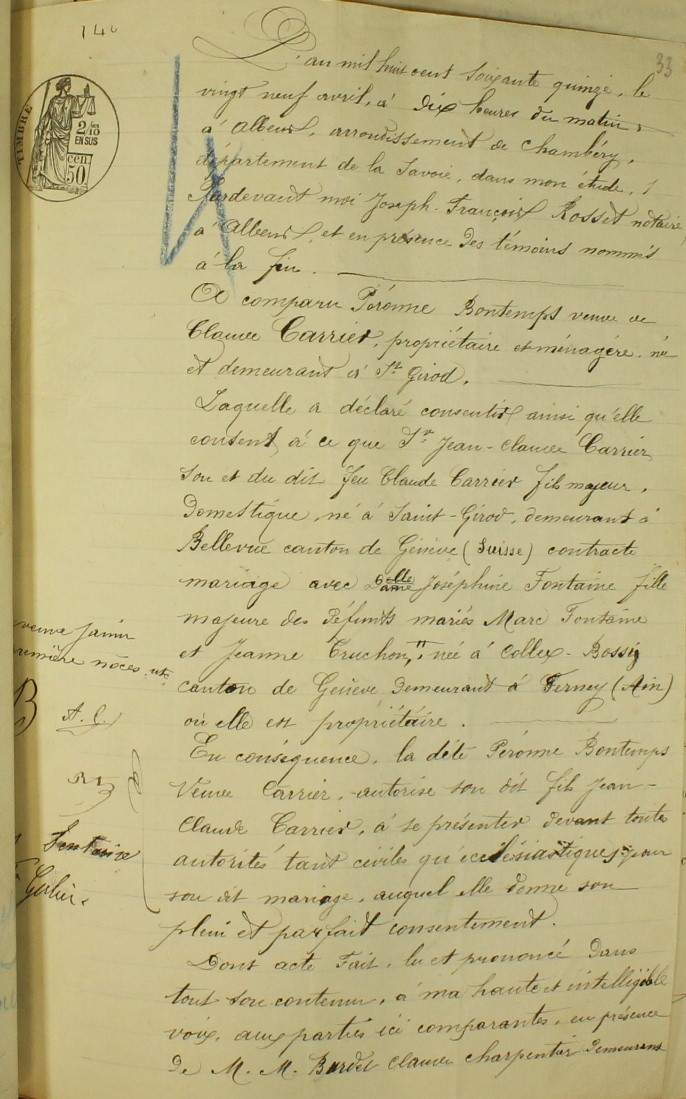 146
33
TIMBRE
2/10
EN SUS
50 cen
L'an mil huit cent soixante quinze, le
vingt neuf avril, à dix heures du matin,
à Albens, arrondissement de Chambéry,
département de la Savoie, dans mon étude,
Pardevant moi Joseph-François Rosset notaire
à Albens, et en présence des témoins nommés
à la fin.
A comparu Péronne Bontemps veuve de
Claude Carrier, propriétaire et ménagère, née
et demeurant à St Girod.
Laquelle a déclaré consentir ainsi qu'elle
consent, à ce que Sr Jean-Claude Carrier
son et du dit feu Claude Carrier fils majeur,
Domestique, né à Saint-Girod, demeurant à
Bellevue canton de Génève (Suisse) contracte
mariage avec Delle Joséphine Fontaine fille
majeure des Défunts mariés Marc Fontaine
et Jeanne Truchon, née à Collex-Bossy
canton de Genève Demeurant à Ferney (Ain)
où elle est propriétaire.
En conséquence, la dète Péronne Bontemps
Veuve Carrier, autorise son dit fils Jean-
Claude Carrier, à se présenter devant toutes
autorités tant civiles qu'ecclésiastiques, pour
son dit mariage, auquel elle donne son
plein et parfait consentement.
Dont acte Fait, lu et prononcé dans
tout son contenu, à ma haute et intelligible
voix, aux parties ici comparantes, en présence
De M. M. Burdet Claude charpentier Demeurant
veuve Janin
première nôces
B
Fontaine